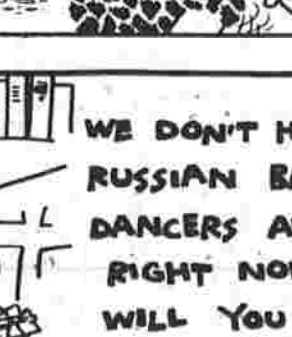 WE DON'T H
RUSSIAN BA
DANCERS A
RIGHT NO
WILL YOU